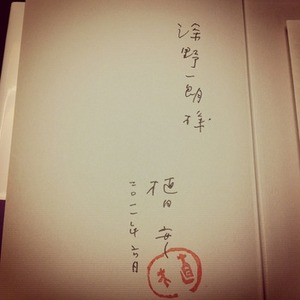 深野一朗様
植田 実
二〇一一年六月
植